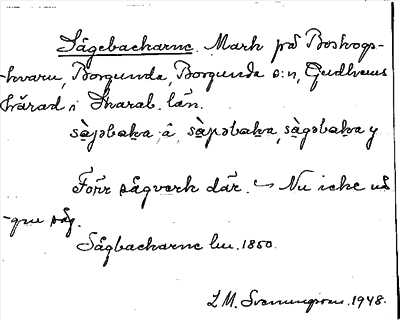 Sågebackarne. Mark på Boskogs-
-kvarn, Borgunda, Borgunda s:n, Gudhems
härad i Skarab. län.
sàgəbaka, â, sàgəbaka, sàgəbaka y
Förr sågverk där. Nu icke nå
-gon såg.
Sågbackarne lm. 1850.
L. M. Svenungsson. 1948.